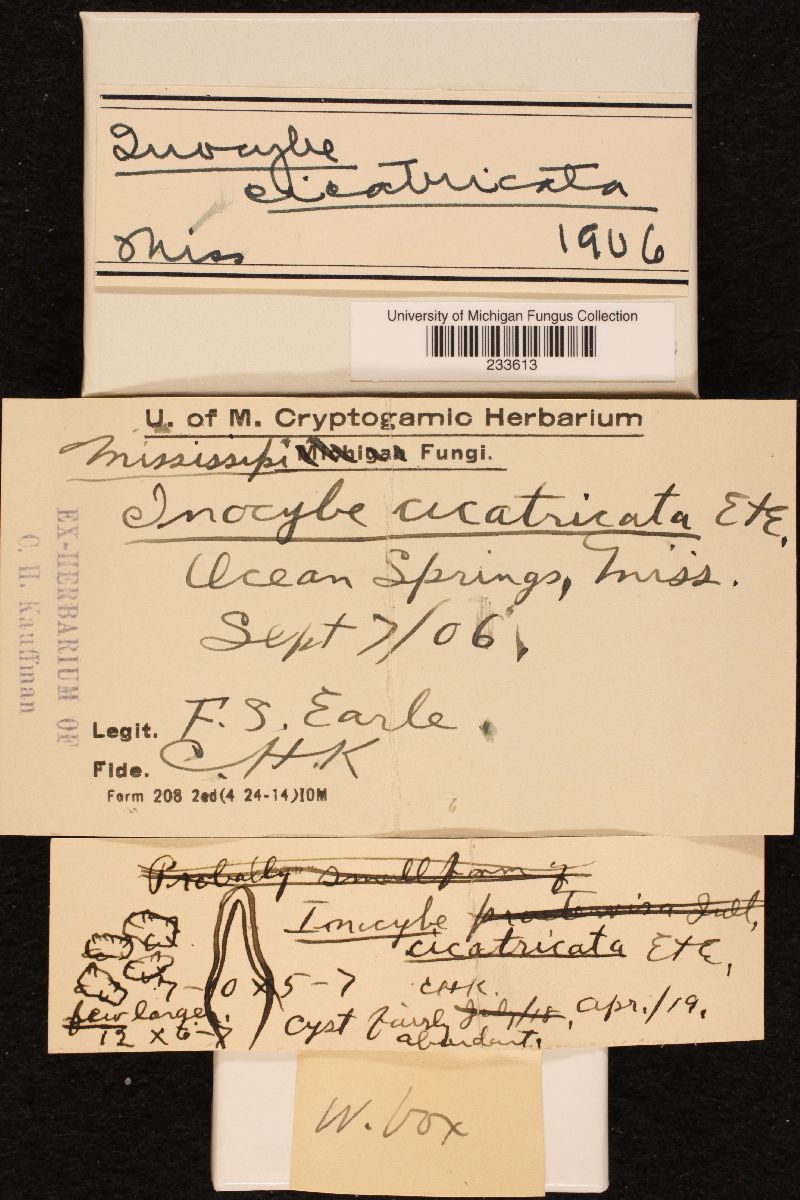 Inocybe
cicatricata
Miss 1906
University of Michigan Fungus Collection
233613
U. of M. Cryptogamic Herbarium
Mississipi Michigan Fungi.
Inocybe cicatricata E+E.
Ocean Springs, Miss.
Sept 7/06.
Legit. F. S. Earle.
Fide. C. H. K
Form 208 2ed(4 24-14)10M
EX-HERBARIUM OF
C. H. Kauffman
Probably small form of
Inocybe
cicatricata E+E.
7-10 x 5-7 CHK.
few larger. July/18, Apr./19.
12 x 6-7 cyst fairly
abundant.
W. box